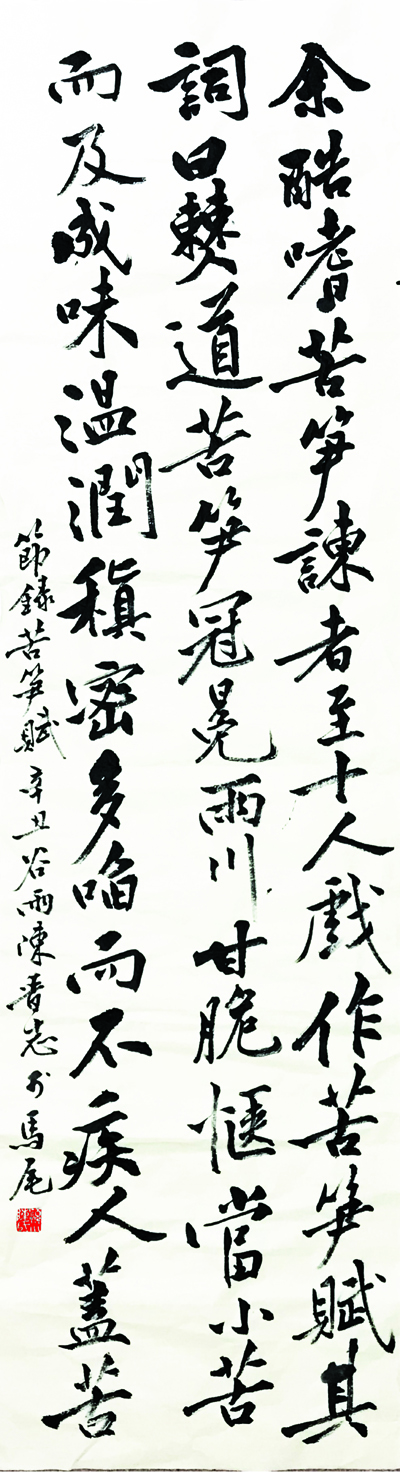 余酷嗜苦笋諫者至十人戲作苦笋賦其
詞曰僰道苦笋冠冕兩川甘脆愜當小苦
而及成味温潤稹密多啗而不疾人蓋苦
節錄苦笋賦辛丑谷雨陳晋志於馬尾